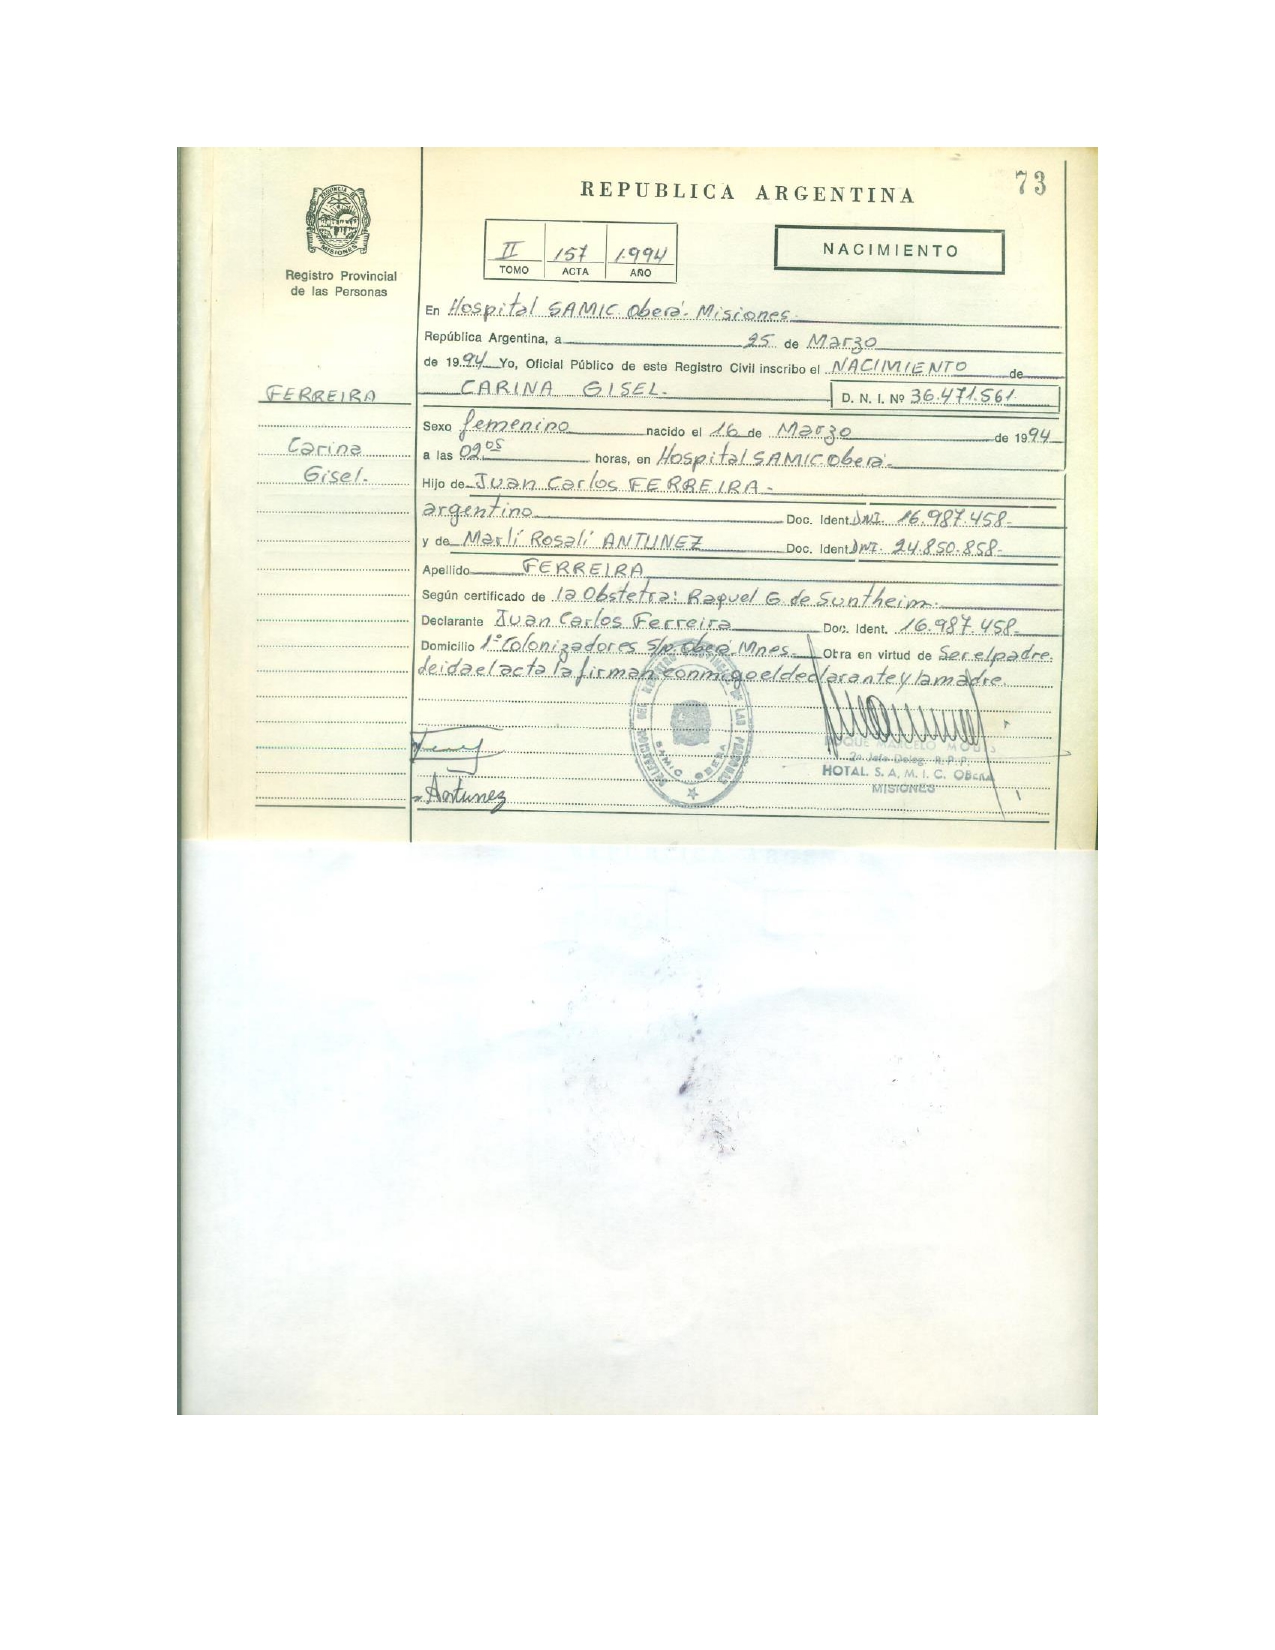 73
REPUBLICA ARGENTINA
PROVINCIA DE
MISIONES
Registro Provincial
de las Personas
II 157 1.994
TOMO ACTA AÑO
NACIMIENTO
FERREIRA
Carina
Gisel.
En Hospital SAMIC. Oberá. Misiones.
República Argentina, a 25 de Marzo
de 1994 Yo, Oficial Público de este Registro Civil inscribo el NACIMIENTO de
CARINA GISEL. D. N. I. Nº 36.471.561
Sexo femenino nacido el 16 de Marzo de 1994
a las 09 05 horas, en Hospital SAMIC. Oberá.
Hijo de Juan Carlos FERREIRA.
argentino Doc. Ident. DNI. 16.987.458
y de Marlí Rosalí ANTUNEZ Doc. Ident. DNI. 24.850.858
Apellido FERREIRA
Según certificado de la Obstetra: Raquel G. de Suntheim.
Declarante Juan Carlos Ferreira Doc. Ident. 16.987.458
Domicilio 1º Colonizadores s/n. Oberá. Mnes. Obra en virtud de Ser el padre.
leida el acta la firman conmigo el declarante y la madre.
DELEGACION DEL REGISTRO PROVINCIAL DE LAS PERSONAS
SAMIC OBERA
ROQUE MARCELO
2º Jefe Deleg. R.P.P.
HOTAL. S. A. M. I. C. OBERA
MISIONES
Antunez